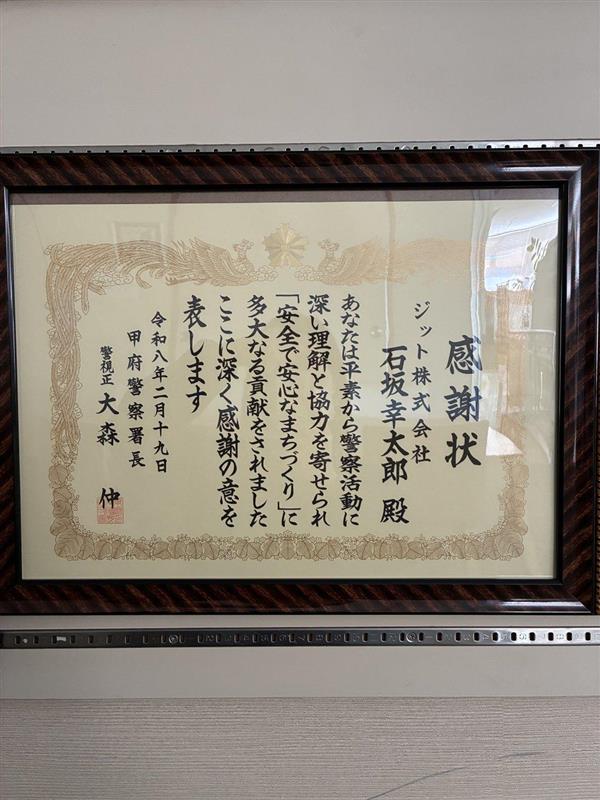 感謝状
ジット株式会社
石坂幸太郎 殿
あなたは平素から警察活動に
深い理解と協力を寄せられ
「安全で安心なまちづくり」に
多大なる貢献をされました
ここに深く感謝の意を
表します
令和八年二月十九日
甲府警察署長
警視正 大森 仲